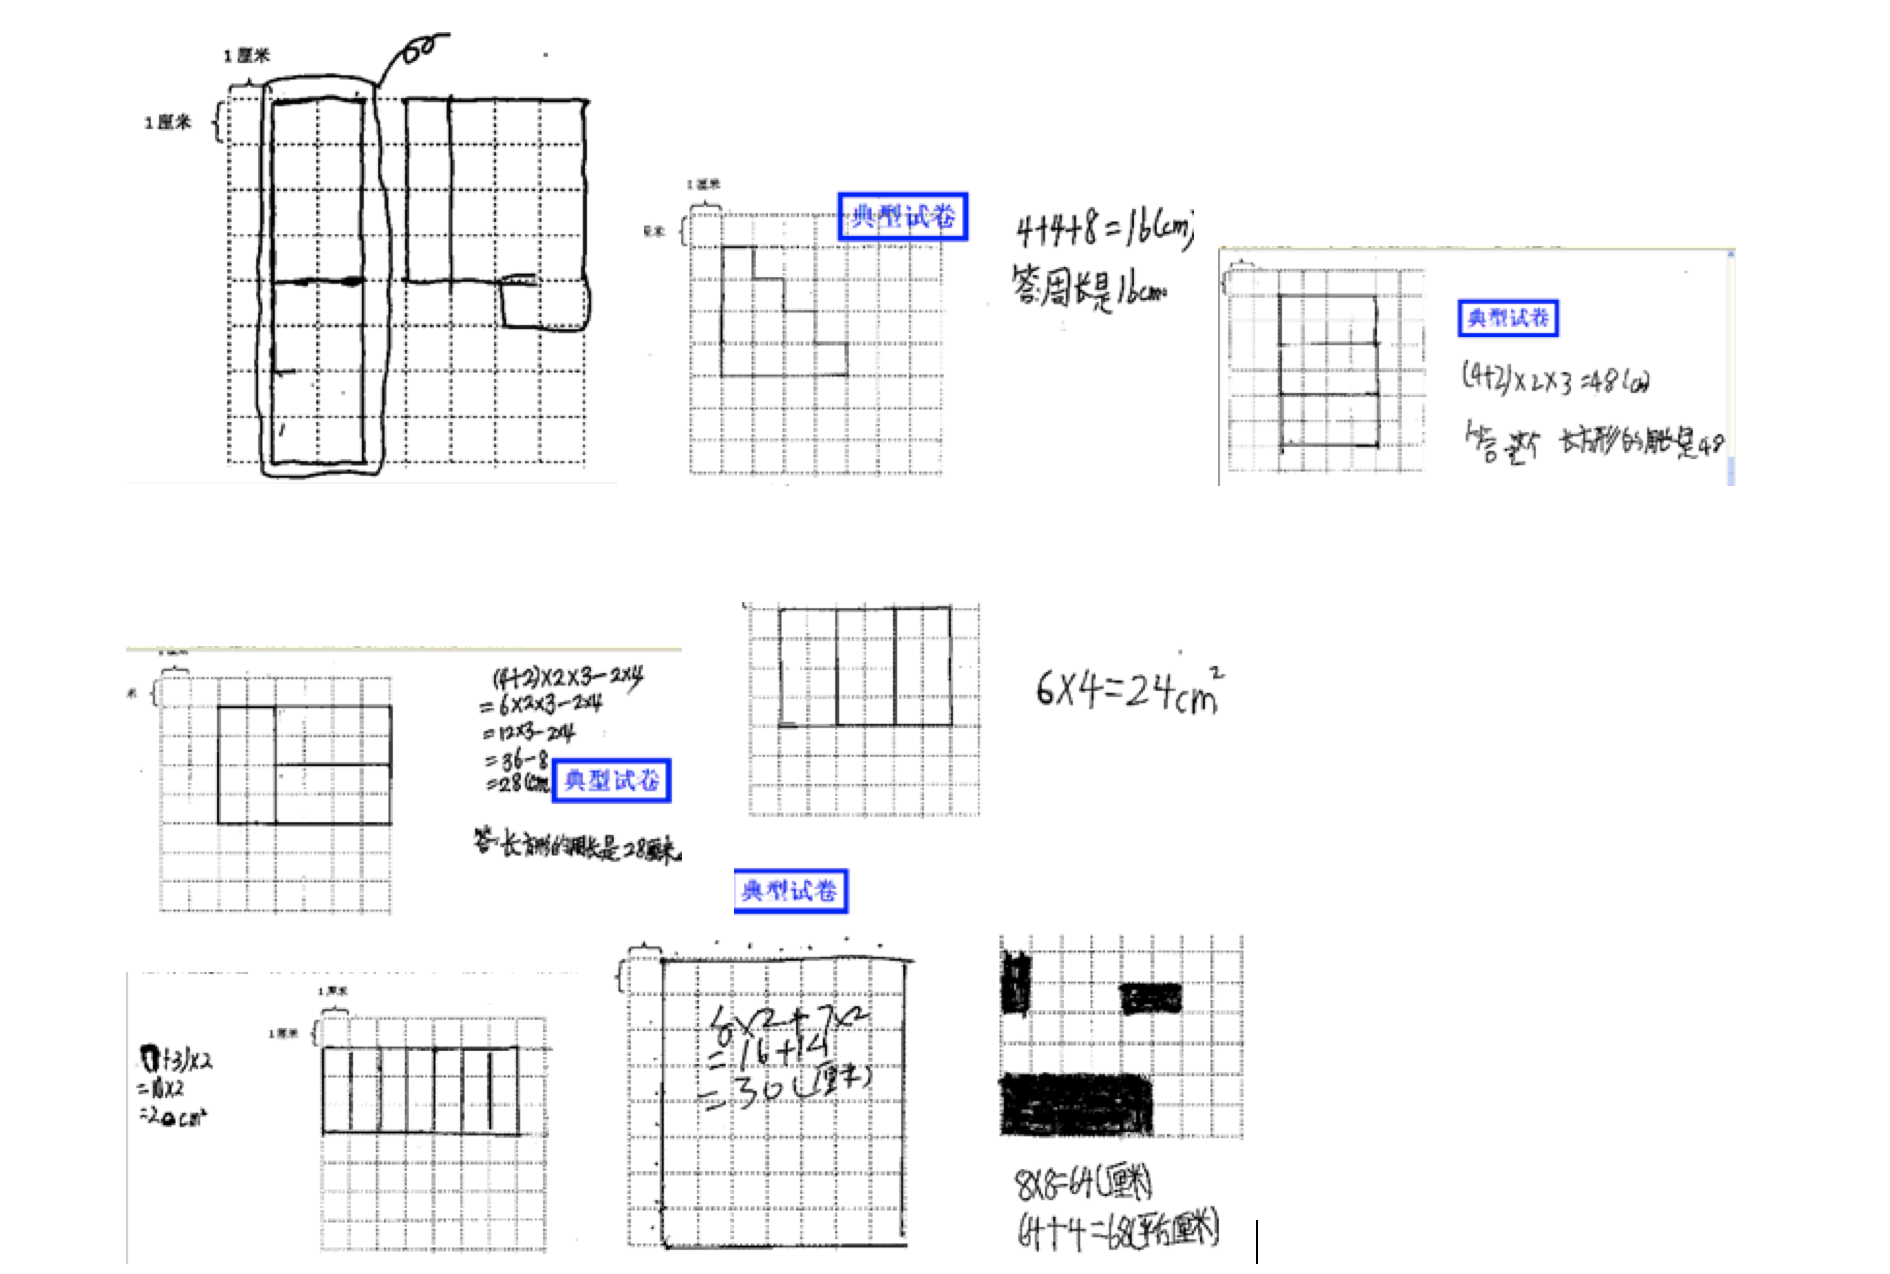 1厘米
1厘米
1厘米
厘米
典型试卷
4+4+8=16(cm)
答:周长是16cm.
典型试卷
(4+2)×2×3=48(cm)
答 这个 长方形的周长是48
米
(4+2)×2×3-2×4
=6×2×3-2×4
=12×3-2×4
=36-8
=28(cm
典型试卷
答:长方形的周长是28厘米.
6×4=24cm²
典型试卷
1厘米
1厘米
+3)×2
=10×2
=20cm²
8×2+7×2
=16+14
=30(厘米)
8×8=64(厘米)
64+4=68(平方厘米)